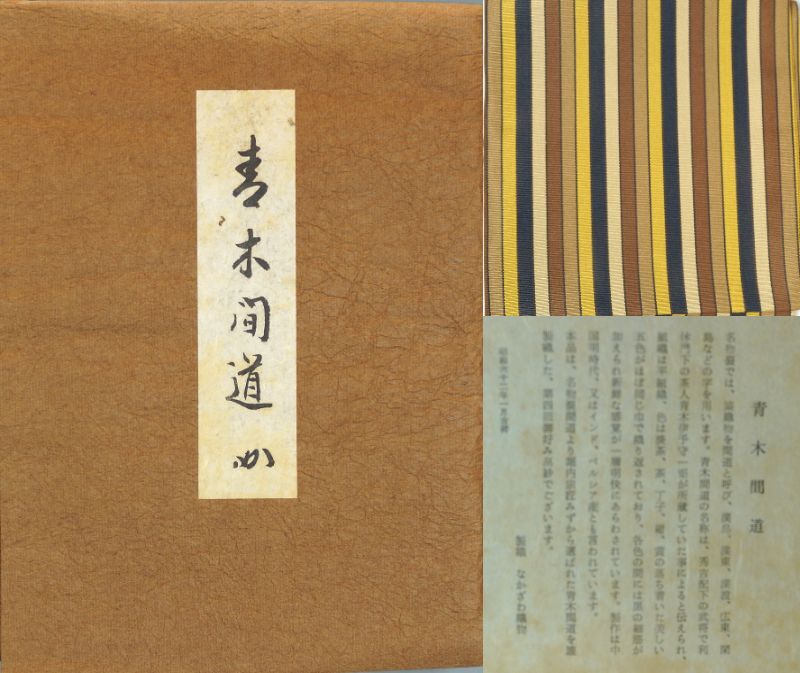 青木間道
青木間道
名物裂では、縞織物を間道と呼び、漢島、漢東、漢渡、広東、閑
島などの字を用います。青木間道の名称は、秀吉配下の武将で利
休門下の茶人青木
守一矩が所蔵していた事によると伝えられ、
組織は平組織、色は淡茶、茶、丁子、紺、黄の落ち着いた美しい
五色がほぼ同じ巾で織り返されており、各色の間には黒の細筋が
加えられ新鮮な感覚が一層明快にあらわされています。製作は中
国明時代、又はインド、ペルシア産とも言われています。
本品は、名物裂間道より堀内宗
みずから選ばれた青木間道を謹
製織した、第四回御好み出帛紗でございます。
昭和六十二年一月吉祥
製織 なかざわ織物